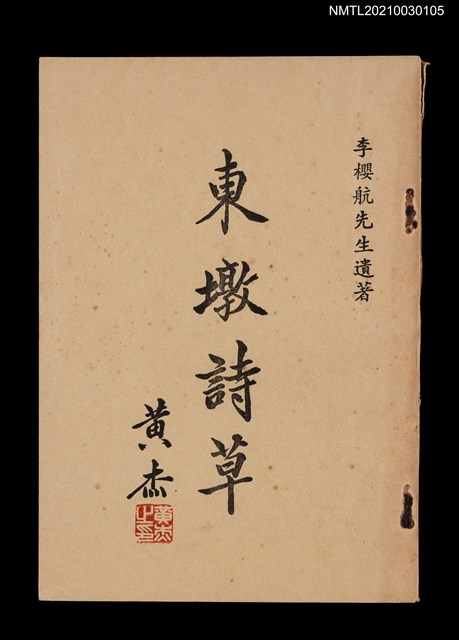 NMTL20210030105
李櫻航先生遺著
東墩詩草
黃杰
黃杰之印